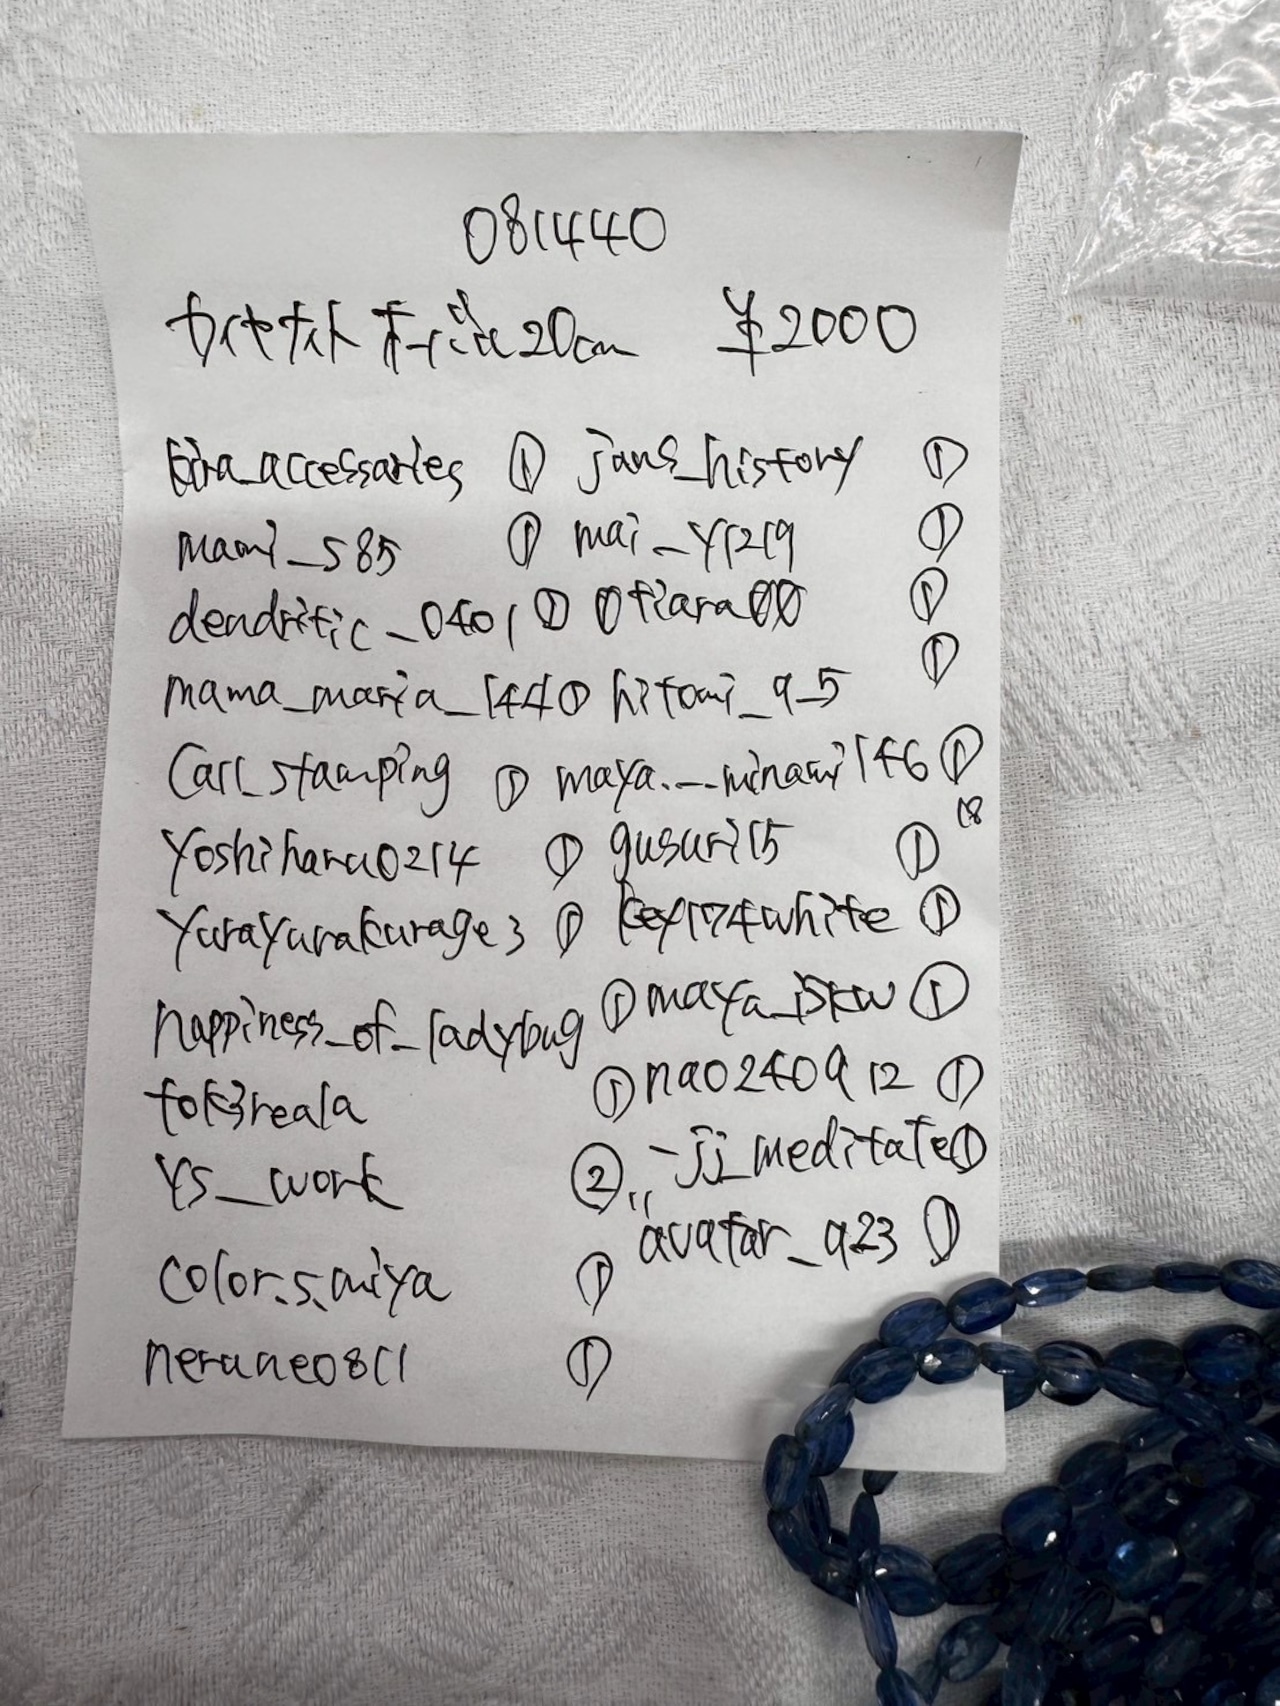 081440
カイヤナイト 20cm ¥2000
kira_accessaries ① jans_history ①
mami_s85 ① mai_y1219 ①
dendritic_0401 ① 0tiara00 ①
mama_maria_1440 hitomi_9_5 ①
Carl_stamping ① maya.__minami146 ①
18
Yoshiharu0214 ① gusuri15 ①
YuraYurakurage3 ① key174white ①
happiness_of_ladybug ① maya_iskw ①
tok3reala ① nao240912 ①
YS__work ② -jj_meditate ①
avatar_923 ①
color.s.miya ①
neruneo811 ①